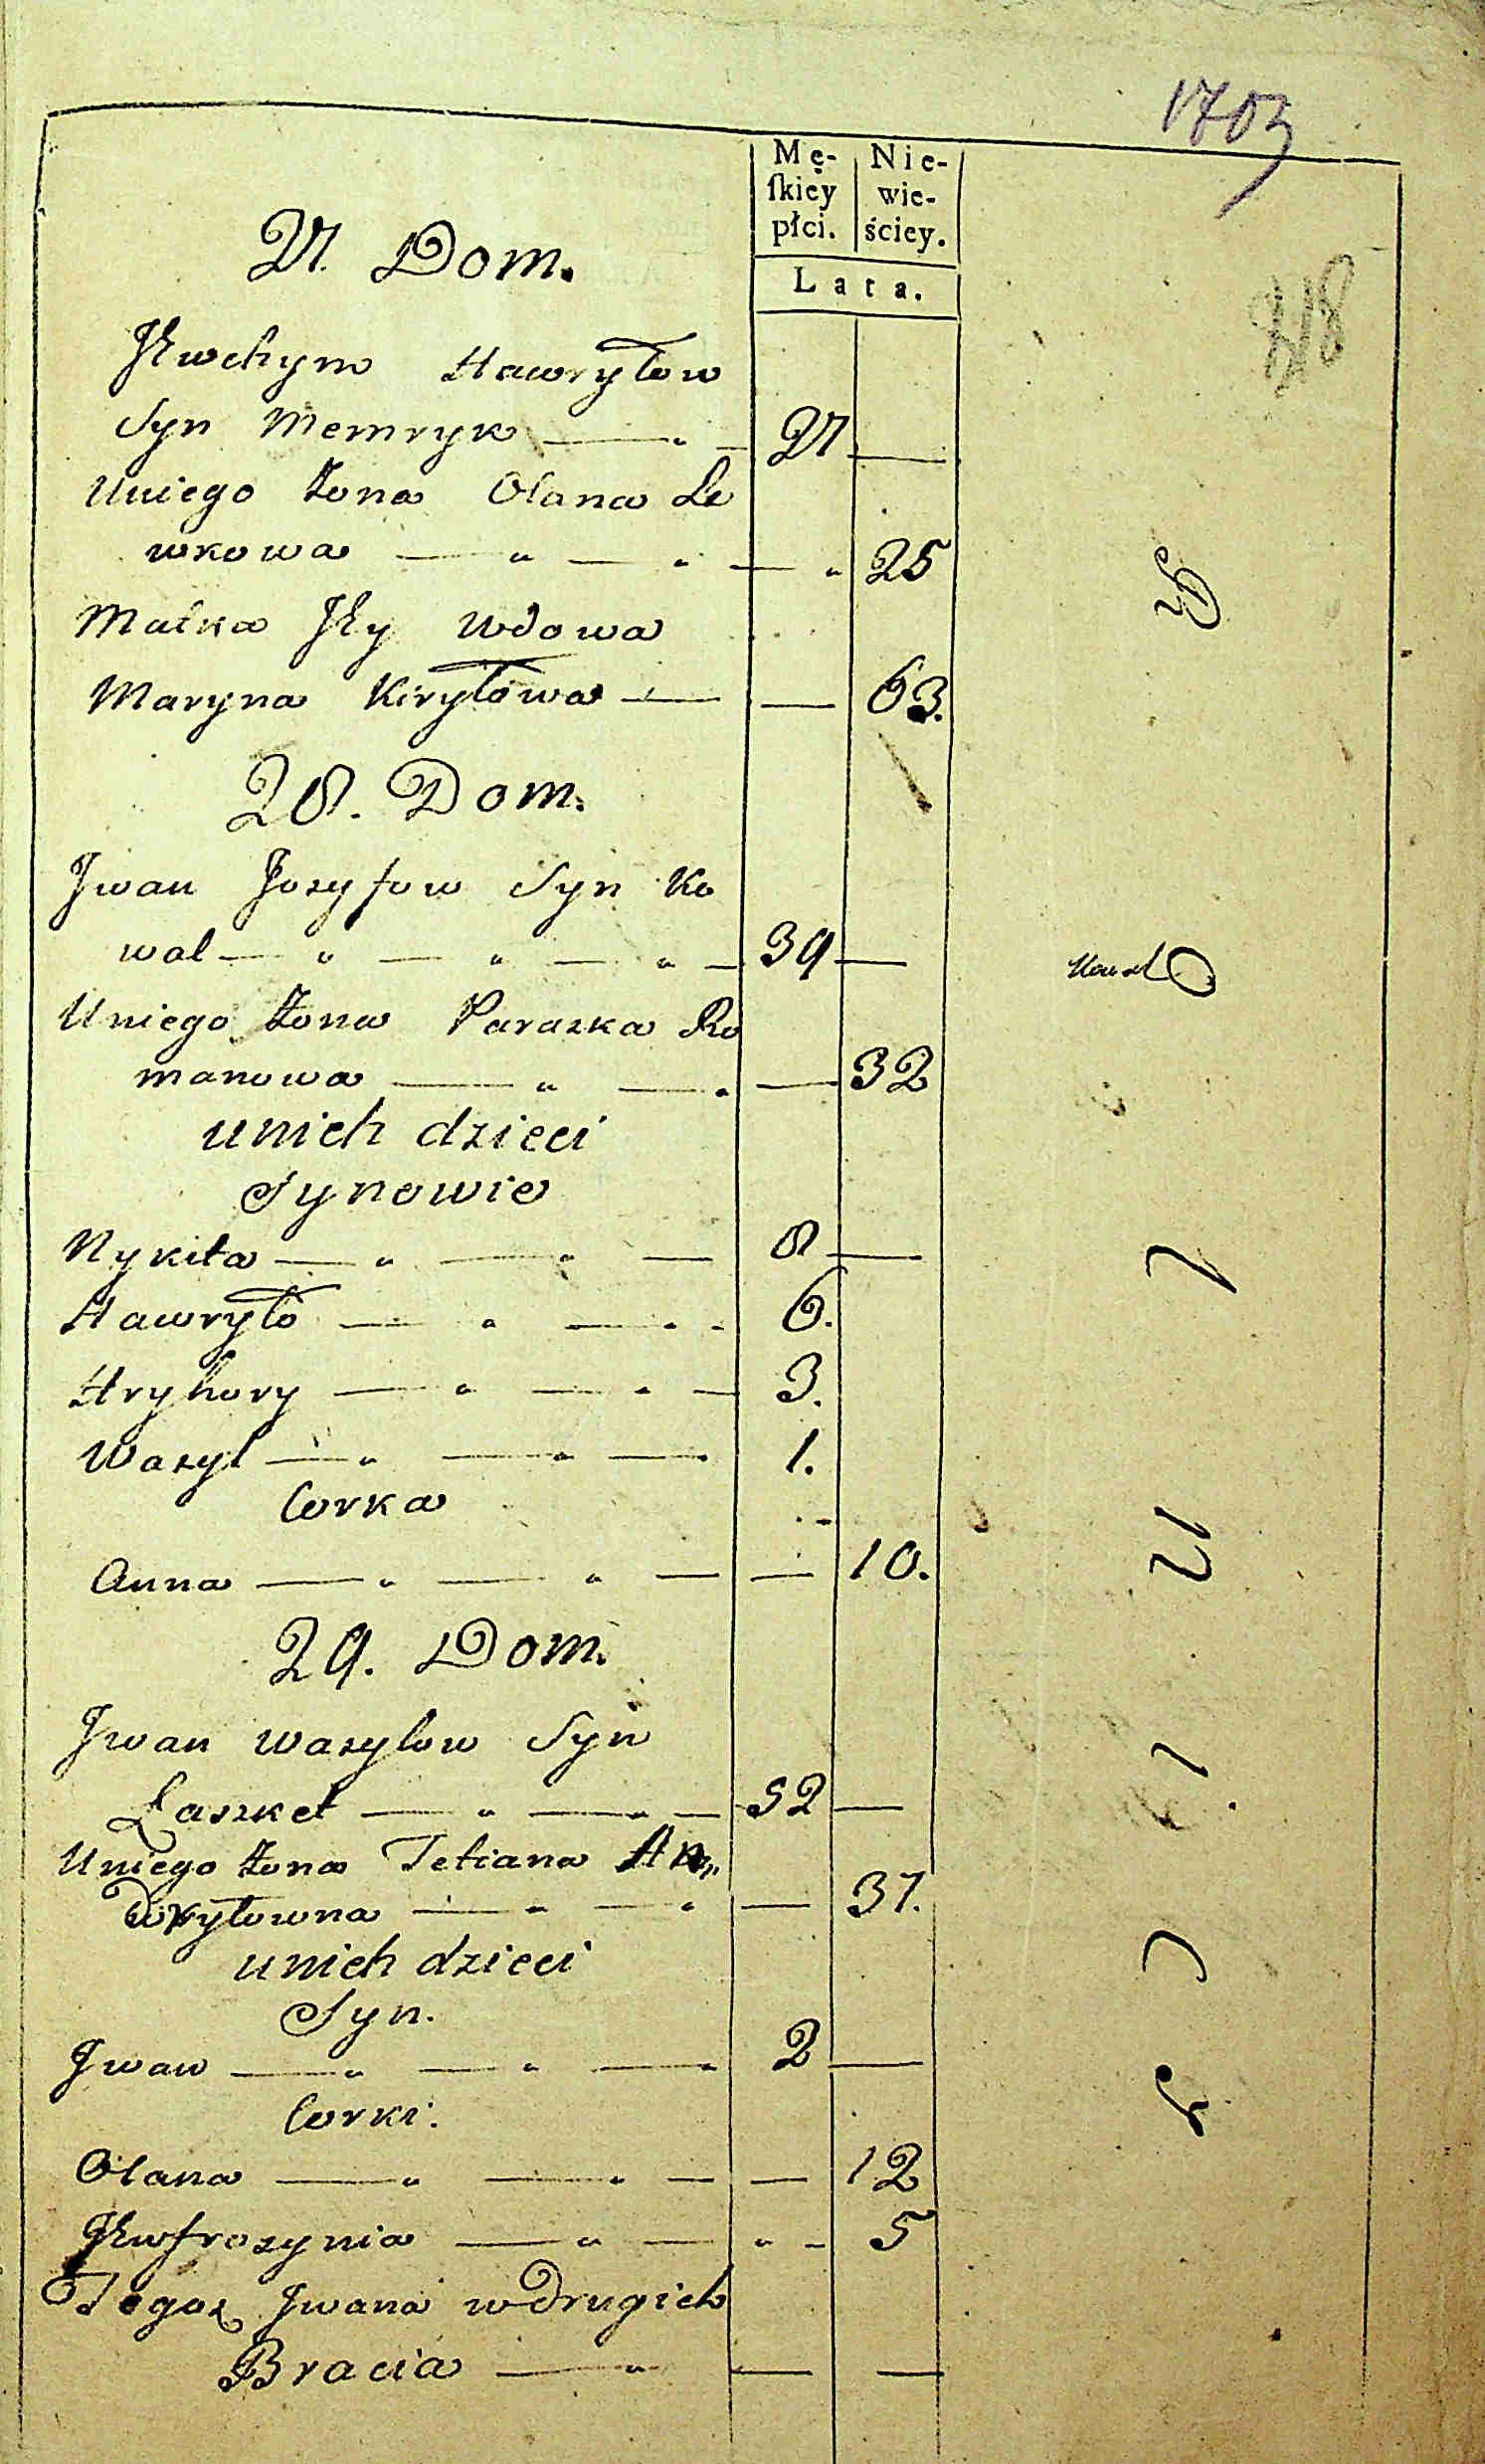 1703
Mę- Nie-
ſkiey wie-
płci. ściey.
Lata.
27. Dom.
Jewchym Hawryłow
Syn Memryk 27
Uniego żona Olana Le
wkowa 25
Matka Jey wdowa
Maryna Kiryłowa 63.
28. Dom.
Jwan Jozyfow Syn Ko
wal 39
Uniego żona Paraszka Ro
manowa 32
unich dzieci
Synowie
Nykita 8
Hawryło 6.
Hryhory 3.
Wasyl 1.
Corka
Anna 10.
29. Dom.
Jwan Wasylow Syn
Łaszket 52
Uniego żona Tetiana
37.
unich dzieci
Syn.
Jwan 2
Corki.
Olana 12
Jewfrozynia 5
Tegoż Jwana w Drugich
Bracia